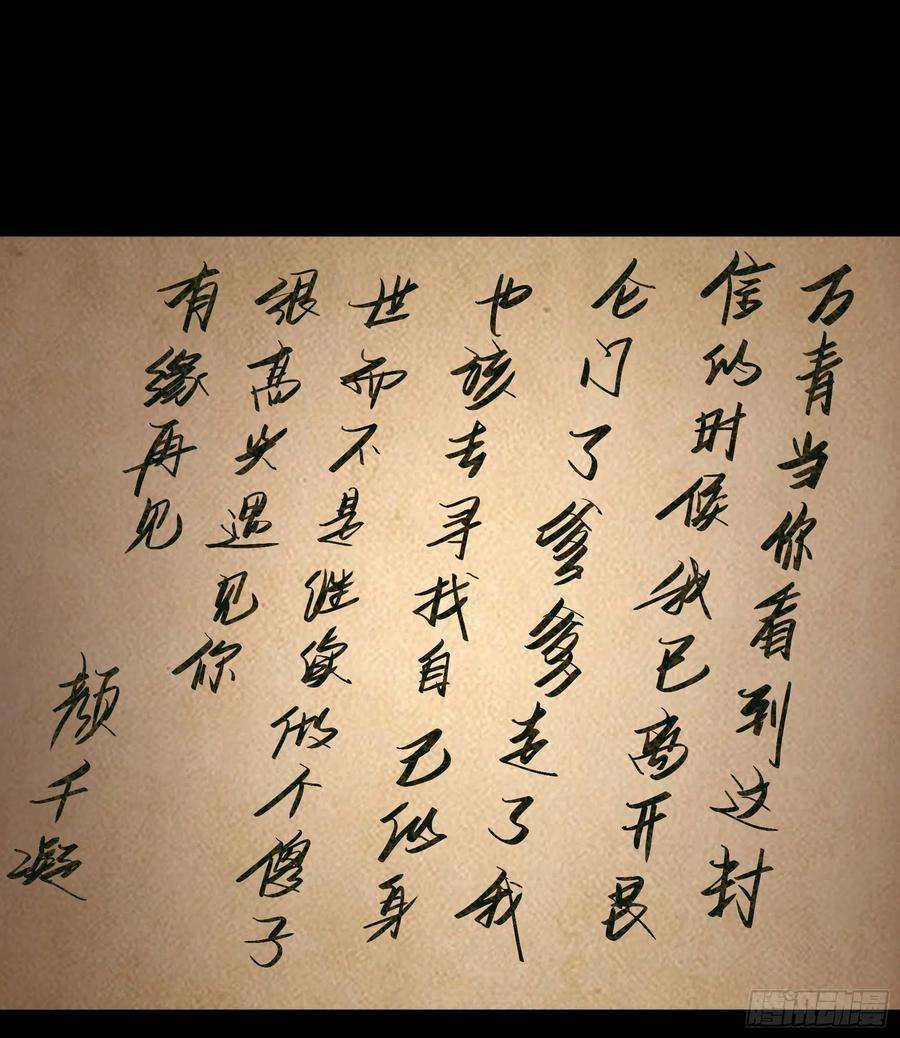 万青当你看到这封
信的时候我已离开艮
仑门了爹爹走了我
也该去寻找自己的身
世而不是继续做个傻子
很高兴遇见你
有缘再见
颜千凝
腾讯动漫